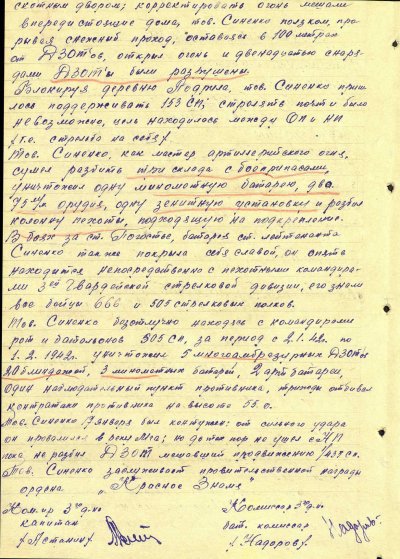 скотным двором; корректировать огонь мешали
впереди стоящие дома, тов. Синенко ползком, про-
рывая снежный проход, оставаясь в 100 метрах
от ДЗОТов, открыл огонь и двенадцатью снаря-
дами ДЗОТы были разрушены.
Блокируя деревню тов. Синенко приш
лось поддерживать 153 СП; стрелять почти было
невозможно, цель находилась между ОП и НП
/т.е. стрельба на себя/
Тов. Синенко, как мастер артиллерийского огня,
сумел разбить три склада с боеприпасами,
уничтожил одну минометную батарею, два
75 м/м орудия, одну зенитную установку и разбил
колонну пехоты, подходящую на подкрепление.
В боях за ст. Погостье, батарея ст. лейтенанта
Синенко также покрыла себя славой, он опять
находится непосредственно с пехотными командира-
ми 3ей Гвардейской стрелковой дивизии, его знали
все бойцы 666 и 505 стрелковых полков.
Тов. Синенко безотлучно находясь с командирами
рот и батальонов 505 СП, за период с 2.1.42. по
1.2.1942г. уничтожил 5 многоамбразурных ДЗОТ
20 блиндажей, 3 минометных батарей, 2 арт. батареи,
один наблюдательный пункт противника, трижды отбивал
контратаки противника на высоте 55.0.
Тов. Синенко 17 января был контужен: от сильного удара
он провалился в реке Мга; но до тех пор не ушел с НП
пока не разбил ДЗОТ мешавший продвижению СП.
Тов. Синенко заслуживает правительственной награды
ордена „Красное Знамя"
Ком-ир 3го д-на Комиссар 3го д-на
капитан бат. комиссар
/Астанин/ /Надоров/